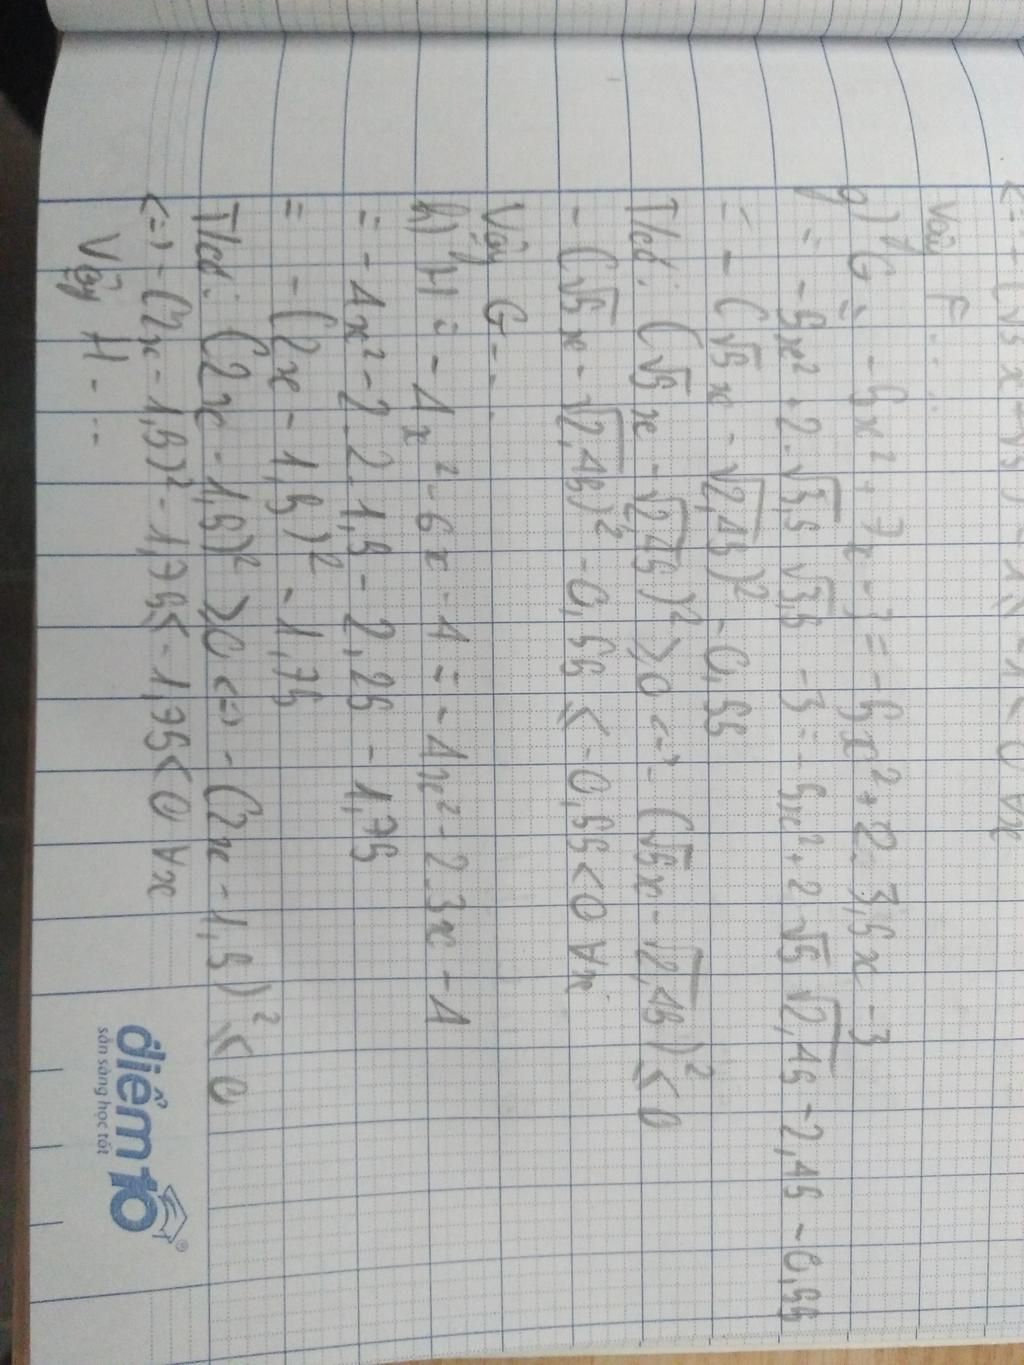 <=> - (√5x - √3)² - 1 ≤ -1 < 0 ∀x
Vậy F...
g) G = -5x² + 7x - 3 = -5x² + 2. 3,5x - 3
= -5x² + 2. √3,5 √3,5 - 3 = -5x² + 2 √5 √2,45 - 2,45 - 0,55
= - (√5x - √2,45)² - 0,55
T/có: (√5x - √2,45)² ≥ 0 <=> - (√5x - √2,45)² ≤ 0
- (√5x - √2,45)² - 0,55 ≤ -0,55 < 0 ∀x
Vậy G...
h) H = -4x² - 6x - 4 = -4x² - 2.3x - 4
= -4x² - 2.2.1,5 - 2,25 - 1,75
= - (2x - 1,5)² - 1,75
T/có: (2x - 1,5)² ≥ 0 <=> - (2x - 1,5)² ≤ 0
<=> - (2x - 1,5)² - 1,75 ≤ -1,75 < 0 ∀x
Vậy H...
điểm 10
sẵn sàng học tốt